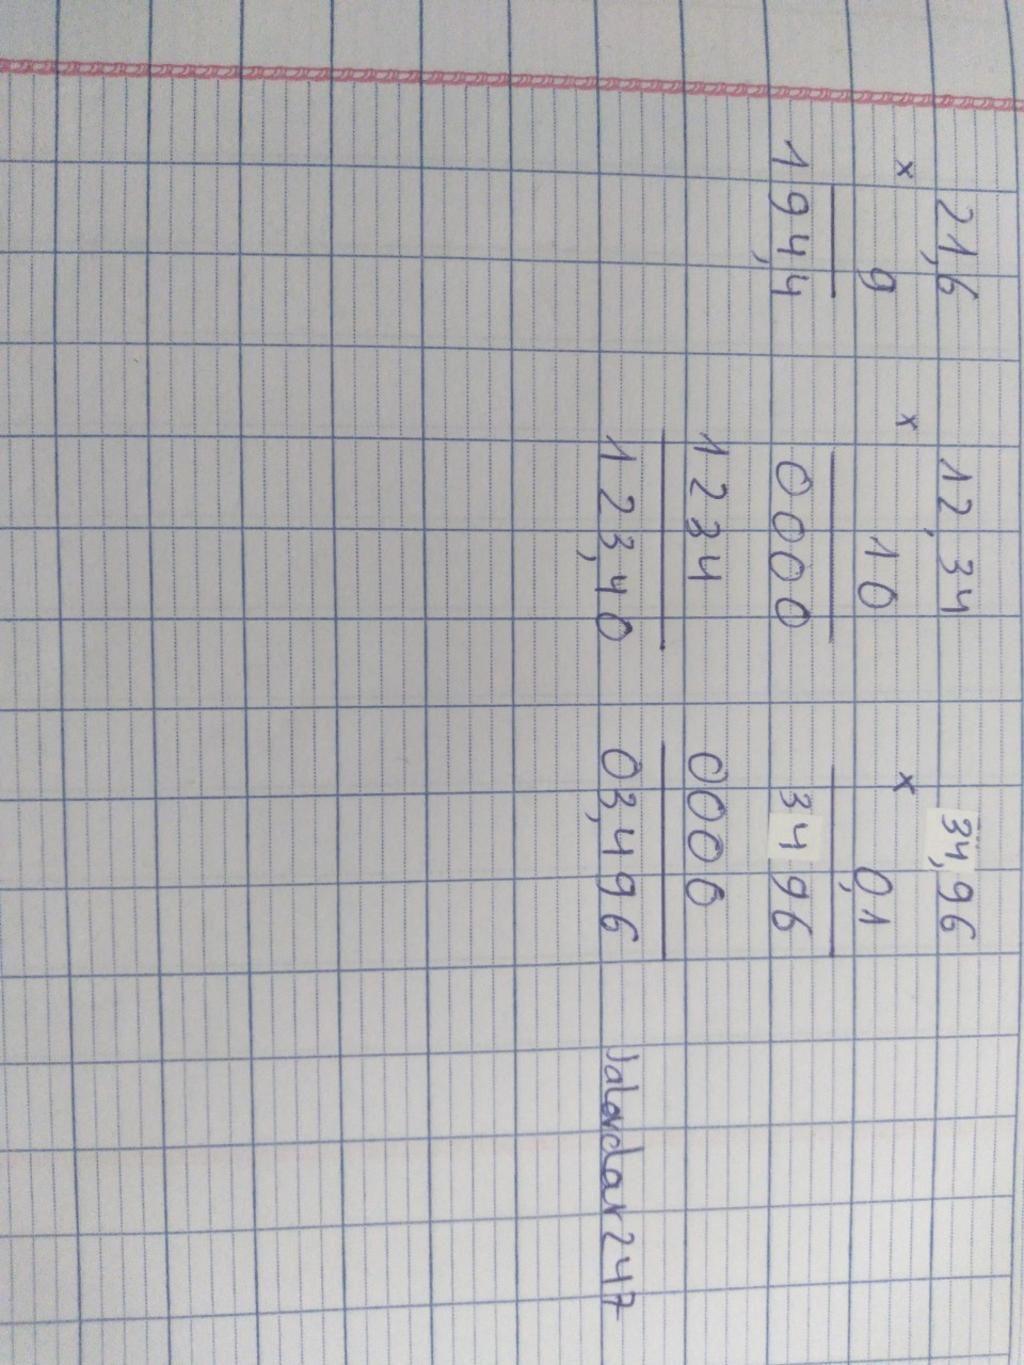 21,6
× 9
194,4
12,34
× 10
0000
1234
123,40
34,96
× 0,1
3496
0000
03,496
Jalovdar247